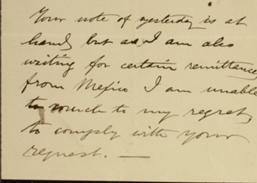 Your note of yesterday is at
hand, but as I am also
waiting for certain remittance
from Mexico I am unable
to much to my regret,
to comply with your
request. —